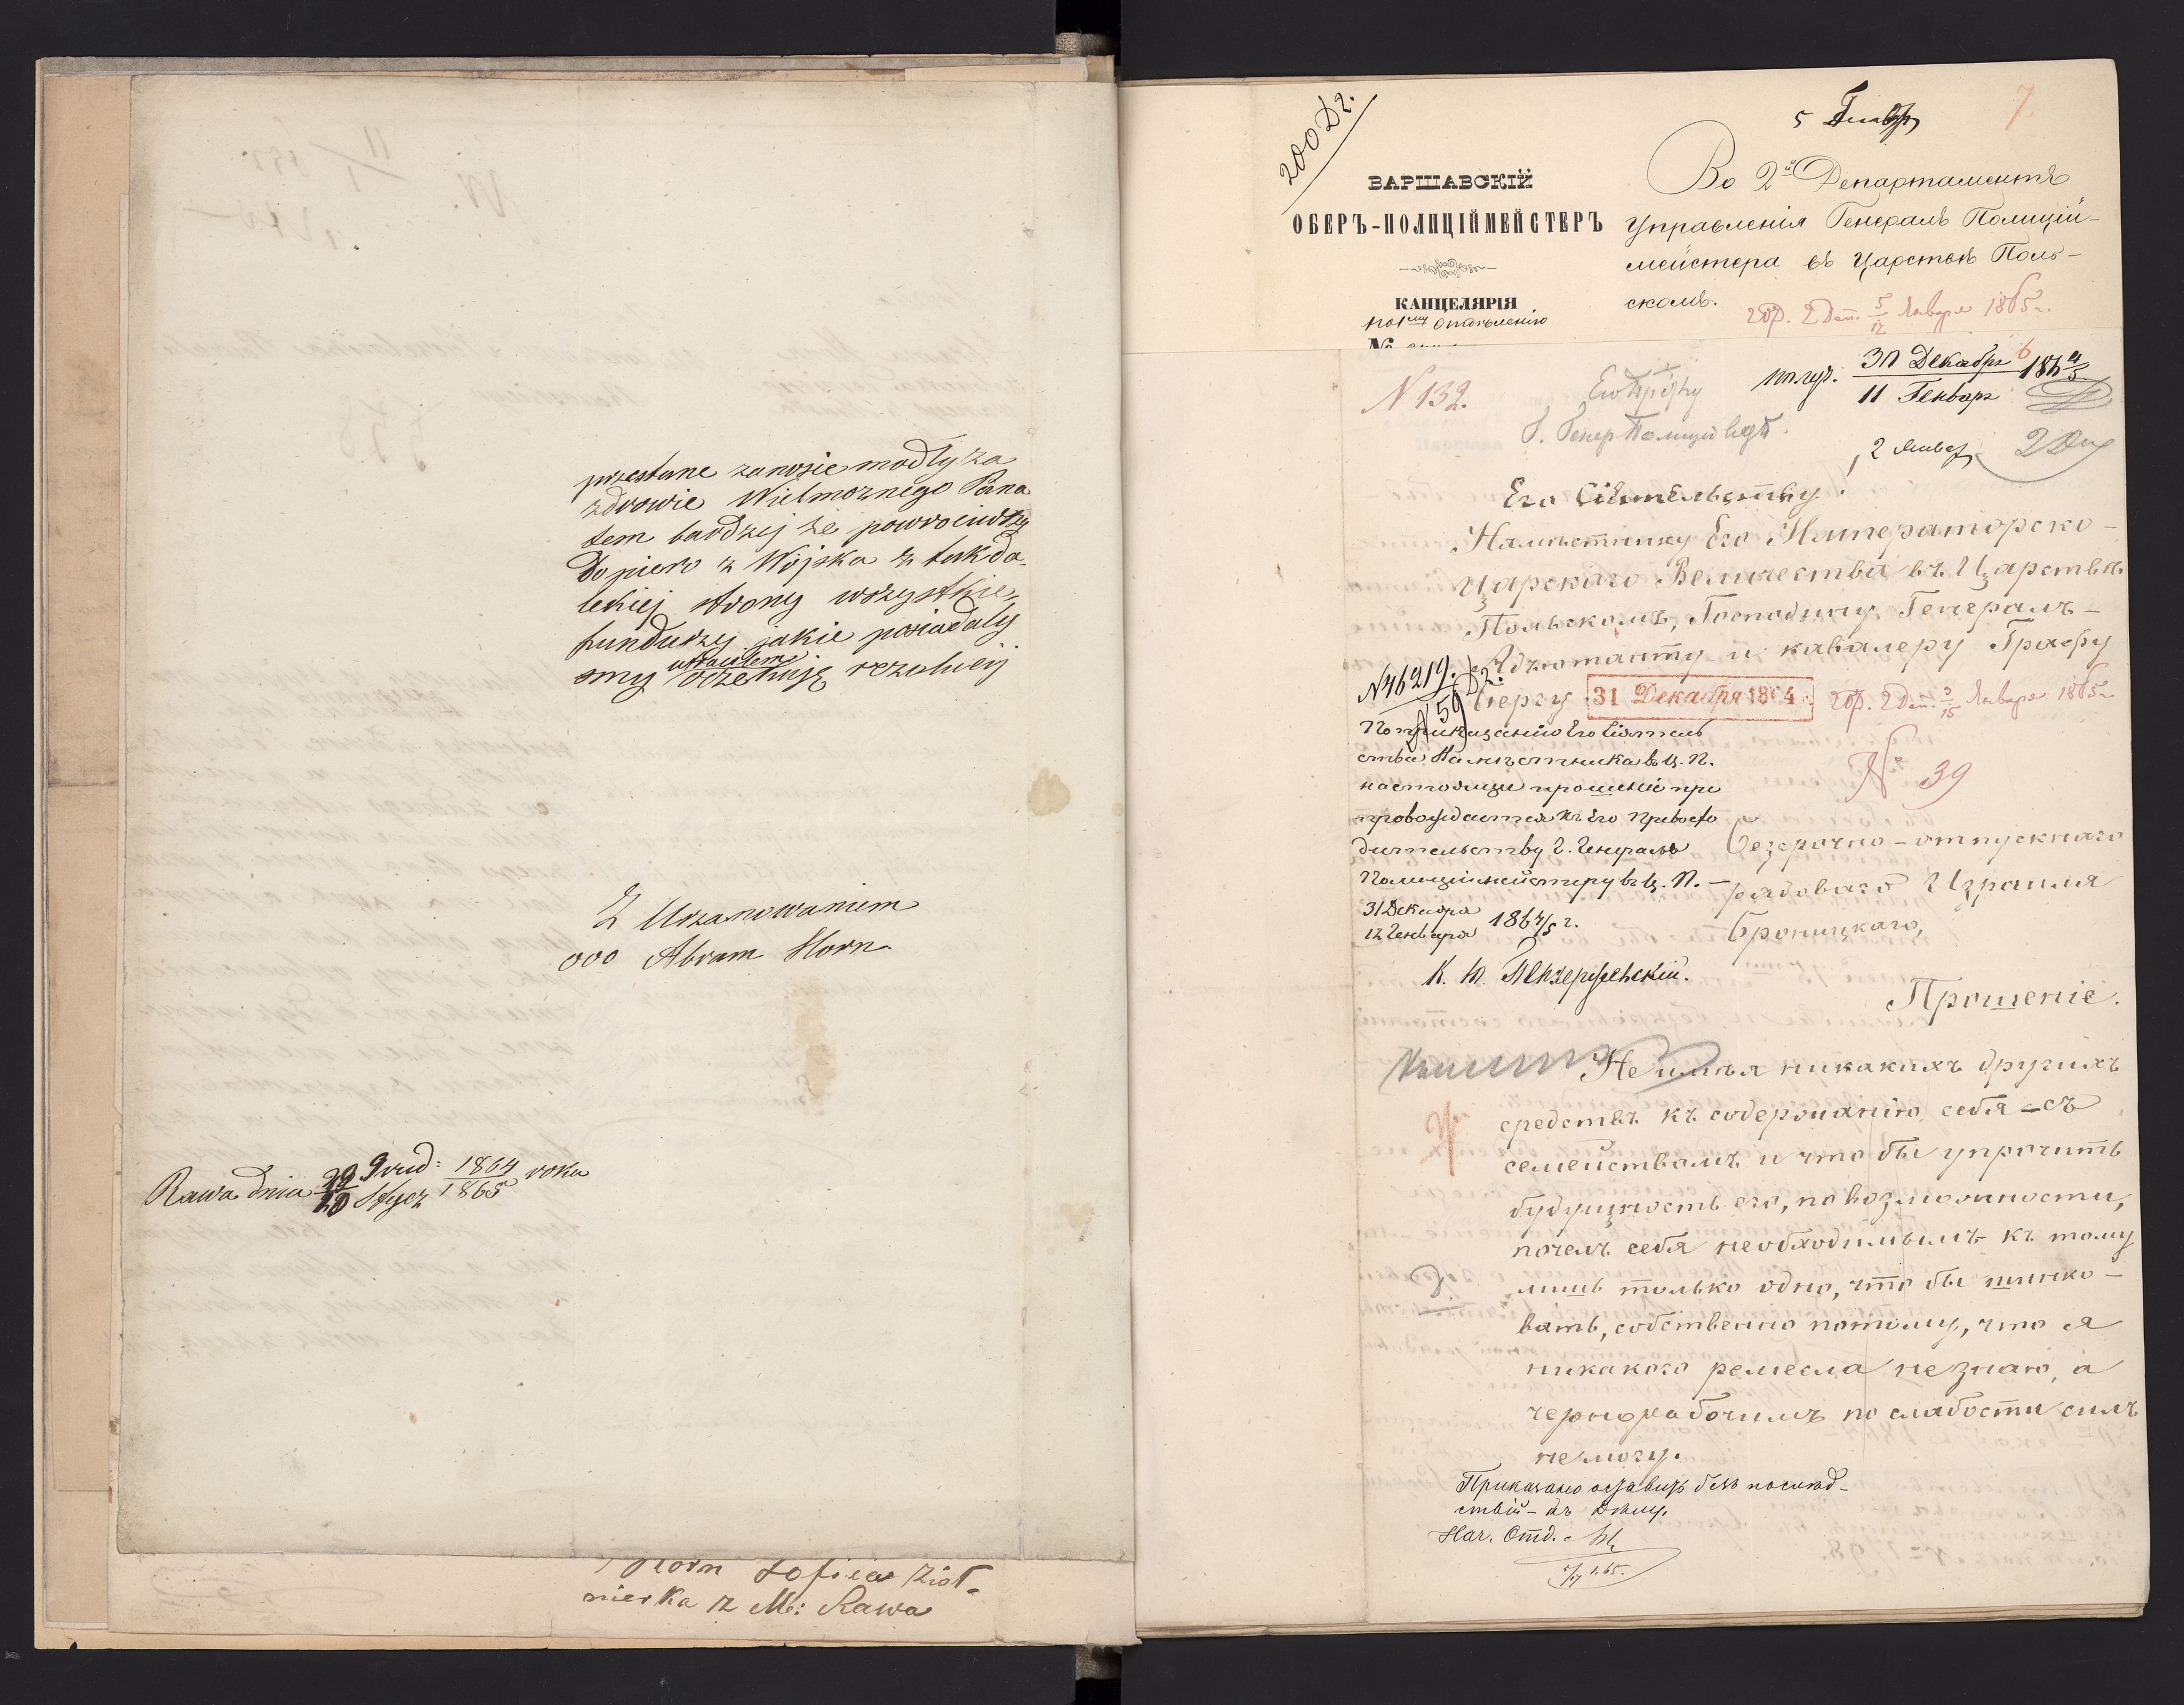 przestane zanosie modly za
zdrowie Wielmoznego Pana
tem bardzej ze powrociwszy
do piero z Wojska z tak da-
lekiej strony wszystkie
funduszy jakie posiadaly
smy utracilem oczekuję rezolucij
Z Uszanowaniem
000 Abram Horn.
Rawa dnia 29/10 Grud: 1864 / Stycz 1865 roku
Horn Zofiia Żoł-
nierka z M: Rawa
200 Д2.
7.
ВАРШАВСКІЙ
ОБЕРЪ-ПОЛИЦІЙМЕЙСТЕРЪ
КАНЦЕЛЯРІЯ
по 1му отдѣленію
№
Во 2й Департаментъ
Управленія Генералъ Полицій-
мейстера въ Царствѣ Поль-
скомъ.
2 Деп. 5/17 Января 1865 г.
N 132.
получ. 30 Декабря / 11 Генваря 1864/5
6
2 Январ
Его Сіятельству
Намѣстнику Его Императорско-
Царскаго Величества въ Царствѣ
Польскомъ, Господину Генералъ-
Адъютанту и кавалеру Графу
Бергу
31 Декабря 1864
2 Деп. 3/15 Января 1865 г.
N 46219.
№ 39
По приказанію Его Сіятель
ства Намѣстника въ Ц. П.
настоящее прошеніе при
провождается къ Его Превосхо
дительству Г. Генералъ
Полиціймейстеру въ Ц. П.-
31 Декабря / 12 Генваря 1864/5 г.
Безсрочно-отпускнаго
рядоваго Израиля
Броницкаго,
Прошеніе.
Не имѣя никакихъ другихъ
средствъ къ содержанію себя съ
семействомъ и что бы упрочить
будущность его, по возможности,
почелъ себя необходимымъ къ тому
лишь только одно, что бы шинко-
вать, собственно потому, что я
никакого ремесла не знаю, а
чернорабочимъ по слабости силъ
не могу.
Приказано оставить безъ послѣд-
ствій - къ дѣлу.
Нач. Отд.